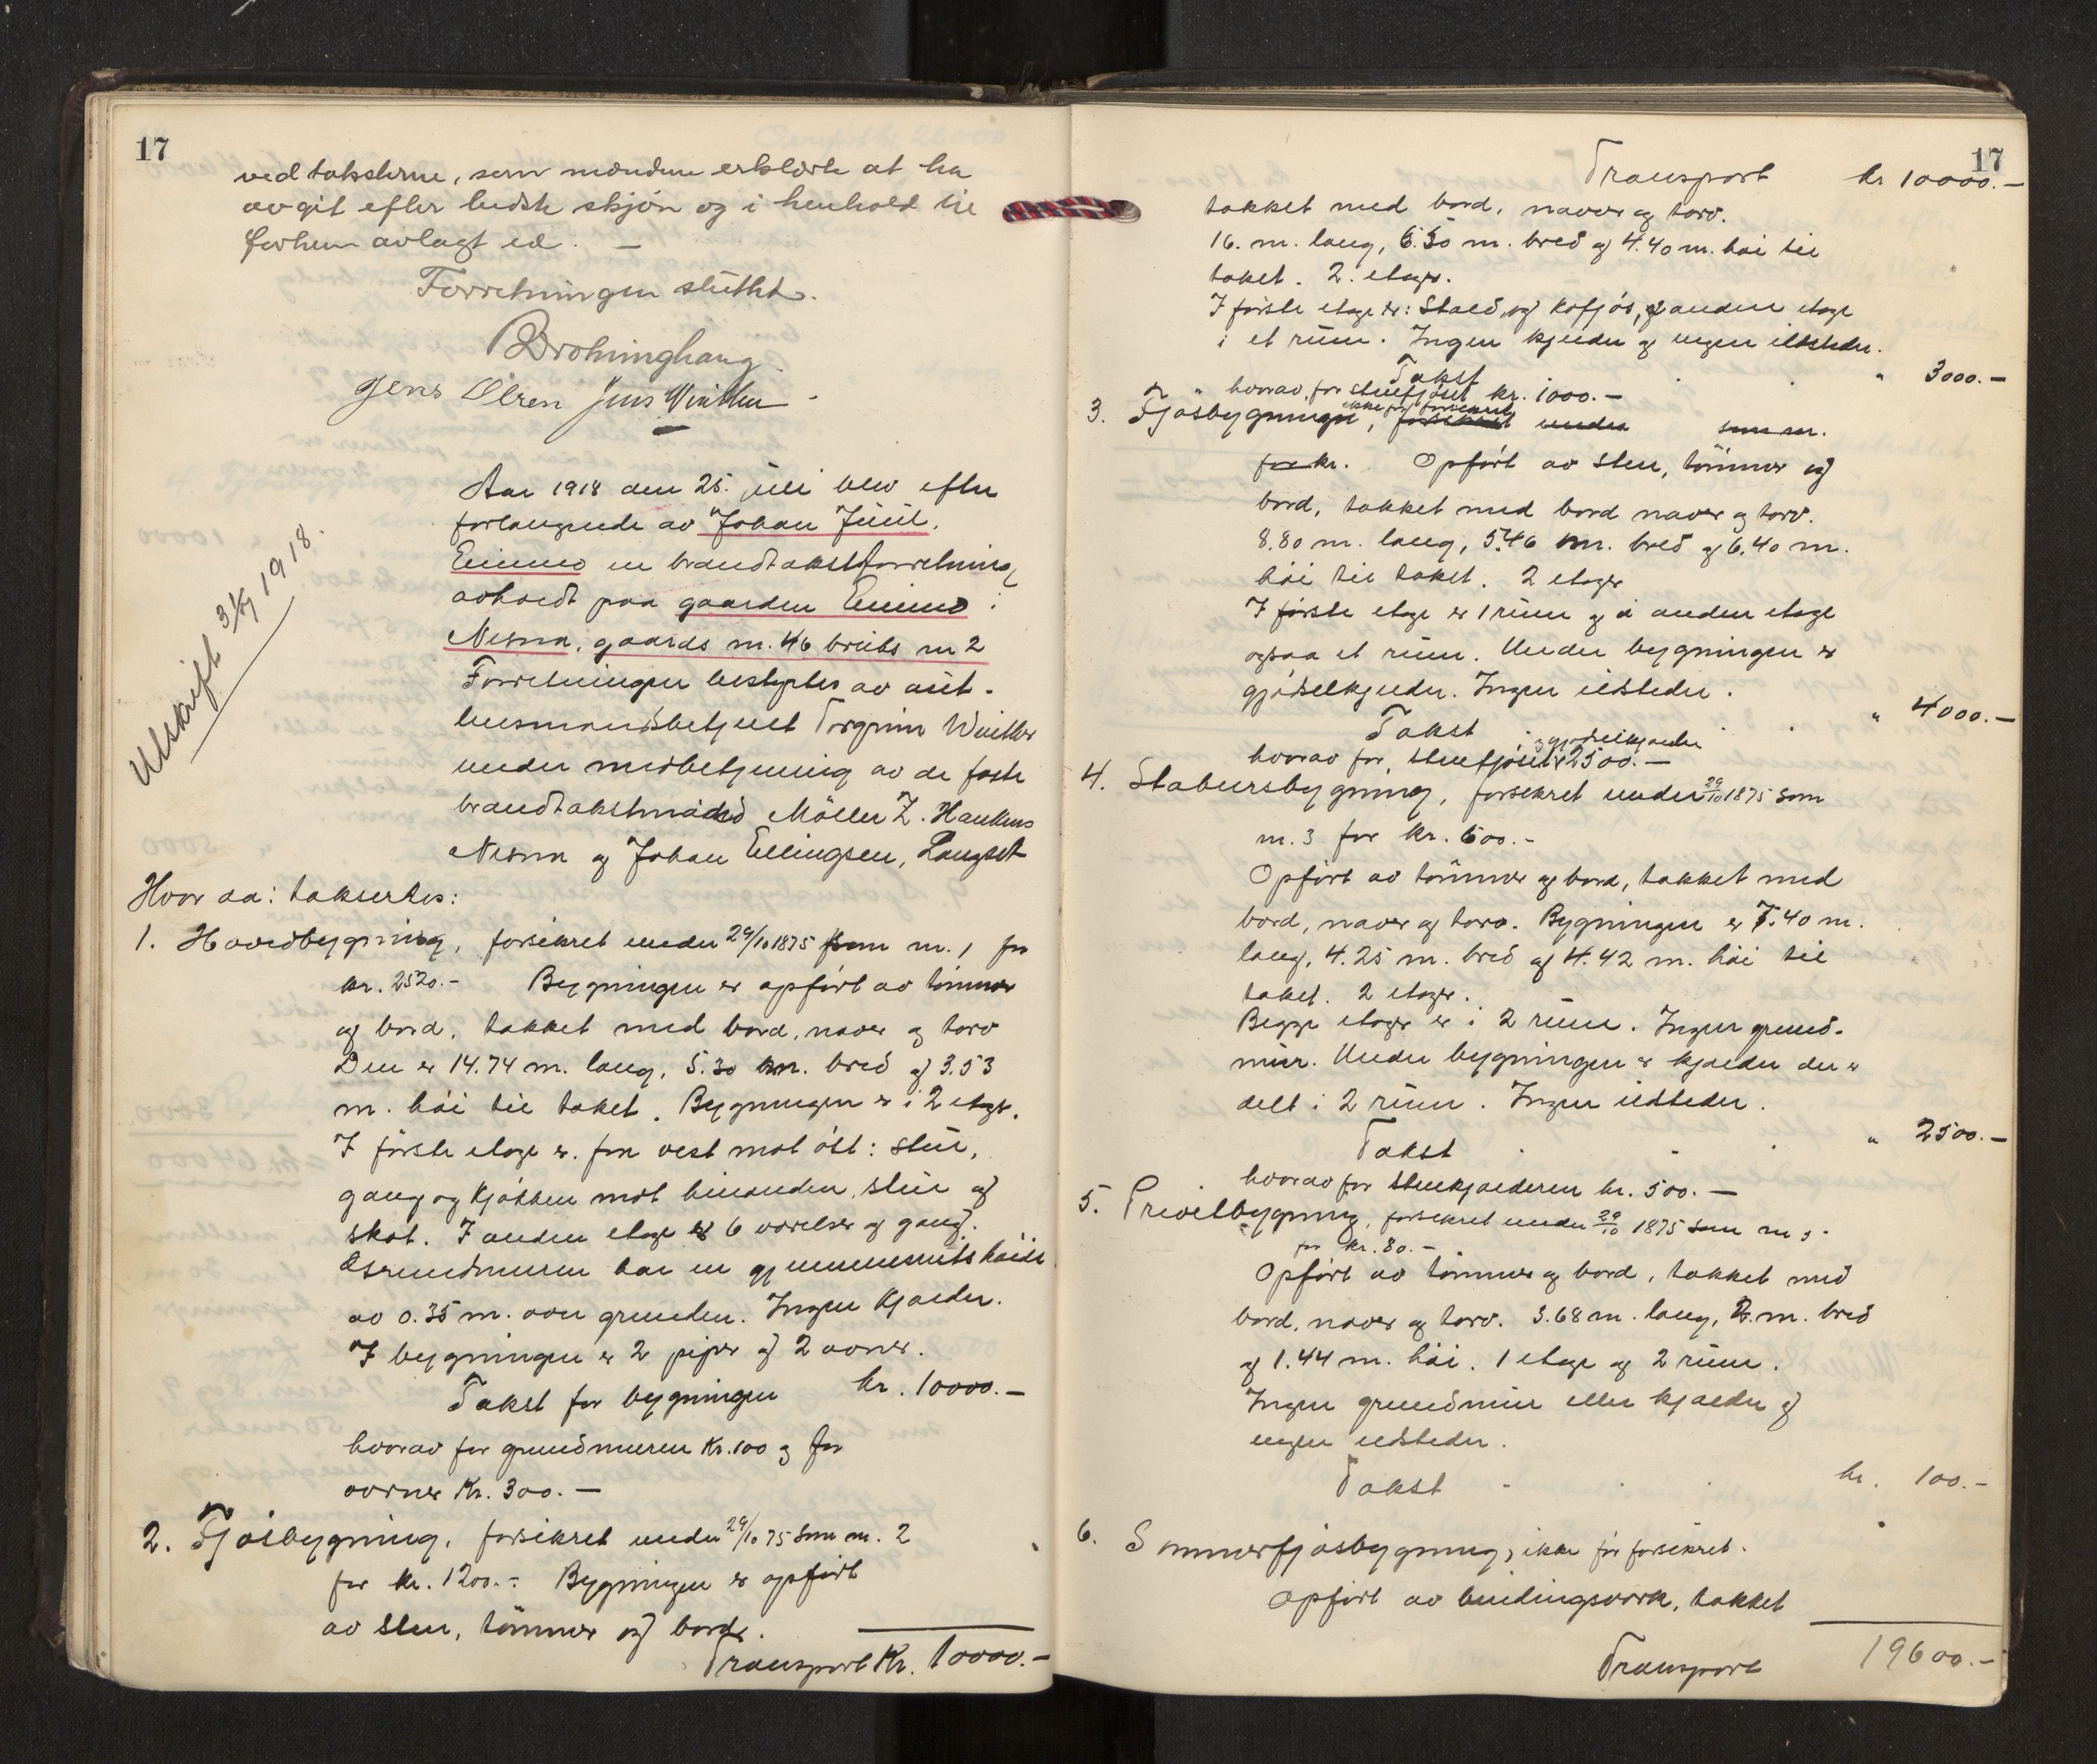 17
ved taksterne, som mændene erklærte at ha
avgit efter bedste skjøn og i henhold til
forhen avlagt ed. —
Forretningen sluttet.
Jens Olsen Jens Winther
Utskrift 31/7 1918.
Aar 1918 den 25. juli blev efter
forlangende av Johan Juul,
en brandtakstforretning
avholdt paa gaarden i
Nesna, gaards nr. 46 bruks nr 2
Forretningen bestyrtes av
lensmandsbetjent Torgrim Winther
under medbetjening av de faste
brandtakstmænd Möller Z. Hankens
Nesna og Johan Ellingsen, Langset
Hvor da: taksertes:
1. Hovedbygning, forsikret under 29/10 1875 som nr. 1 for
kr. 2520.- Bygningen er opført av tömmer
og bord, tækket med bord, næver og torv
Den er 14.74 m. lang, 5.30 m. bred og 3.53
m. høi til taket. Bygningen er i 2 etager.
I første etage er fra vest mot øst: stue,
gang og kjøkken mot hinanden, stue og
skot. I anden etage er 6 værelser og gang.
Grundmuren har en gjennemsnitshøide
av 0.35 m. over grunden. Ingen kjælder.
I bygningen er 2 piper og 2 ovner.
Takst for bygningen kr. 10000.—
hvorav for grundmuren Kr. 100 og for
ovner Kr. 300. —
2. Fjøsbygning, forsikret under 29/10 75 som nr. 2
for kr. 1200.- Bygningen er opført
av sten, tömmer og bord.
Transport Kr. 10000.—
17
Transport kr 10000.—
tækket med bord, næver og torv.
16. m. lang, 6.50 m. bred og 4.40 m. høi til
taket. 2. etager.
I første etage er: Stald og kofjøs, og anden etage
i et rum. Ingen kjelder og ingen ildsteder.
Takst " 3000.—
" hvorav for stenfjøset kr. 1000.—
3. Fjøsbygningen, ikke før forsikret forsikret under som nr.
for kr. Opført av sten, tömmer og
bord, tækket med bord næver og torv.
8.80 m. lang, 5.46 m. bred og 6.40 m.
høi til taket. 2 etager
I første etage er 1 rum og i anden etage
ogsaa et rum. Under bygningen er
gjødselkjelder. Ingen ildsteder.
Takst " 4000.—
hvorav for stenfjøset og gjødselkjælder 2500.—
4. Stabursbygning, forsikret under 29/10 1875 som
nr. 3 for kr. 600.-
Opført av tömmer og bord, tækket med
bord, næver og torv. Bygningen er 7.40 m.
lang, 4.25 m. bred og 4.42 m. høi til
taket. 2 etager.
Begge etager er i 2 rum. Ingen grund-
mur. Under bygningen er kjælder der er
delt i 2 rum. Ingen ildsteder.
Takst " 2500.—
hvorav for stenkjælderen kr. 500.—
5. Privetbygning, forsikret under 29/10 1875 som nr 5
for kr. 80.-
Opført av tömmer og bord, tækket med
bord, næver og torv. 3.68 m. lang, 2. m. bred
og 1.44 m. høi. 1 etage og 2 rum.
Ingen grundmur eller kjælder og
ingen ildsteder.
Takst kr. 100.-
6. Sommerfjøsbygning, ikke før forsikret.
Opført av bindingsverk, tækket
Transport 19600.—